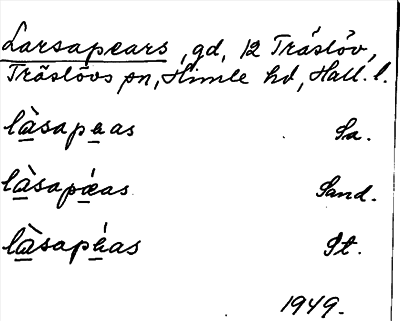 Larsapears, gd, 12 Träslöv,
Träslövs sn, Himle hd, Hall. l.
là̱sape̱as Sa.
là̱sapǽ̱as Sand.
là̱sapé̱as St.
1949.